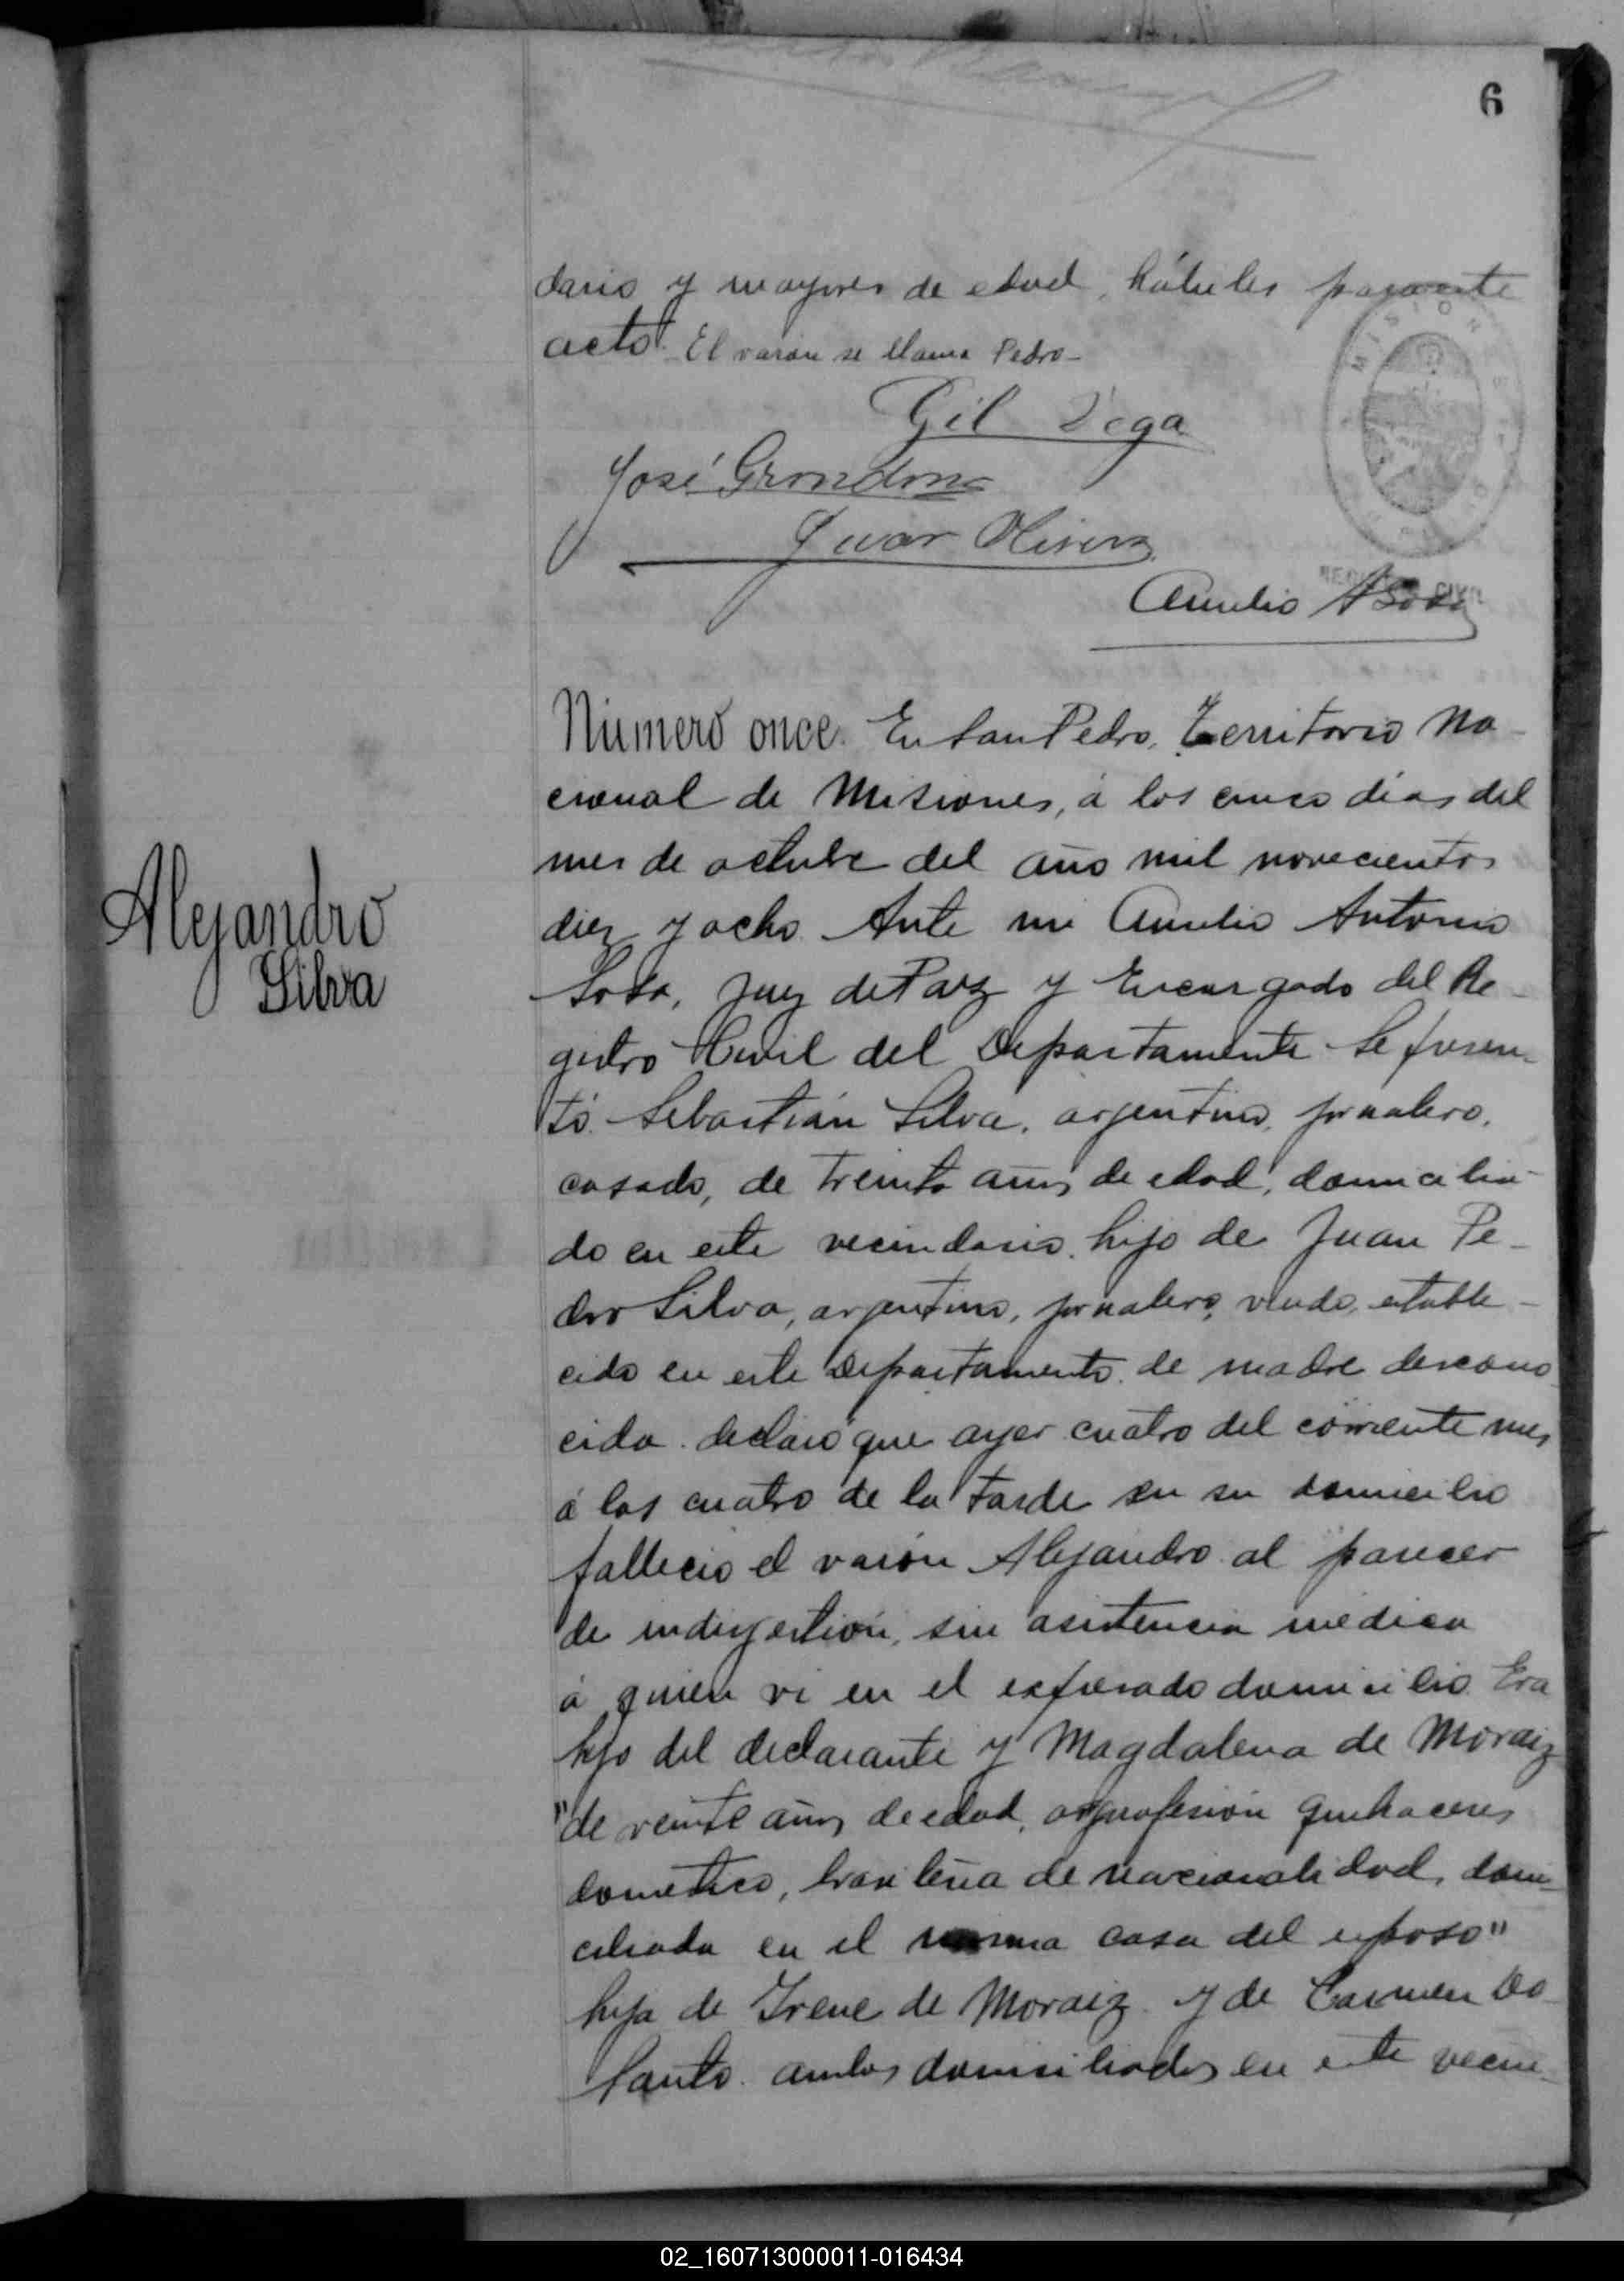 6
dario y mayores de edad, hábiles para este
acto. El varón se llama Pedro-
MISIONES
Gil Vega
José Grondona
Juar Olivera
REGISTRO CIVIL
Aurelio A Soto
Número once. En San Pedro, Territorio Na-
cional de Misiones, á los cinco días del
mes de octubre del año mil novecientos
diez y ocho. Ante mi Aurelio Antonio
Soto, Juez de Paz y Encargado del Re-
gistro Civil del Departamento Se presen-
tó Sebastián Silva, argentino, jornalero,
casado, de treinta años de edad, domicilia-
do en este vecindario, hijo de Juan Pe-
dro Silva, argentino, jornalero, viudo, estable-
cido en este Departamento, de madre descono
cida. declaró que ayer cuatro del corriente mes
á las cuatro de la tarde en su domicilio
falleció el varón Alejandro al parecer
de indigestión, sin asistencia médica
á quien vi en el expresado domicilio. Era
hijo del declarante y Magdalena de Moraiz
"de veinte años de edad, profesión quehaceres
domestico, brasileña de nacionalidad, domi-
ciliada en el misma casa del esposo"
hija de Irene de Moraiz y de Carmen Do
Santo. ambos domiciliados en este vecin-
Alejandro
Silva
02_160713000011-016434